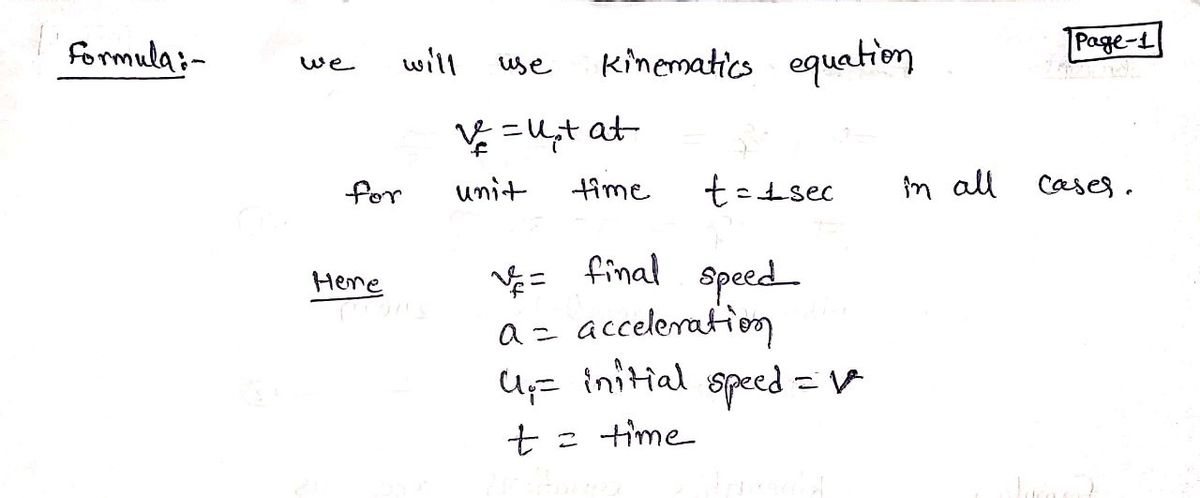 Formula:- we will use Kinematics equation Page-1
v_f = u_i + at
for unit time t = 1 sec in all cases.
Here v_f = final speed
a = acceleration
u_i = initial speed = v
t = time